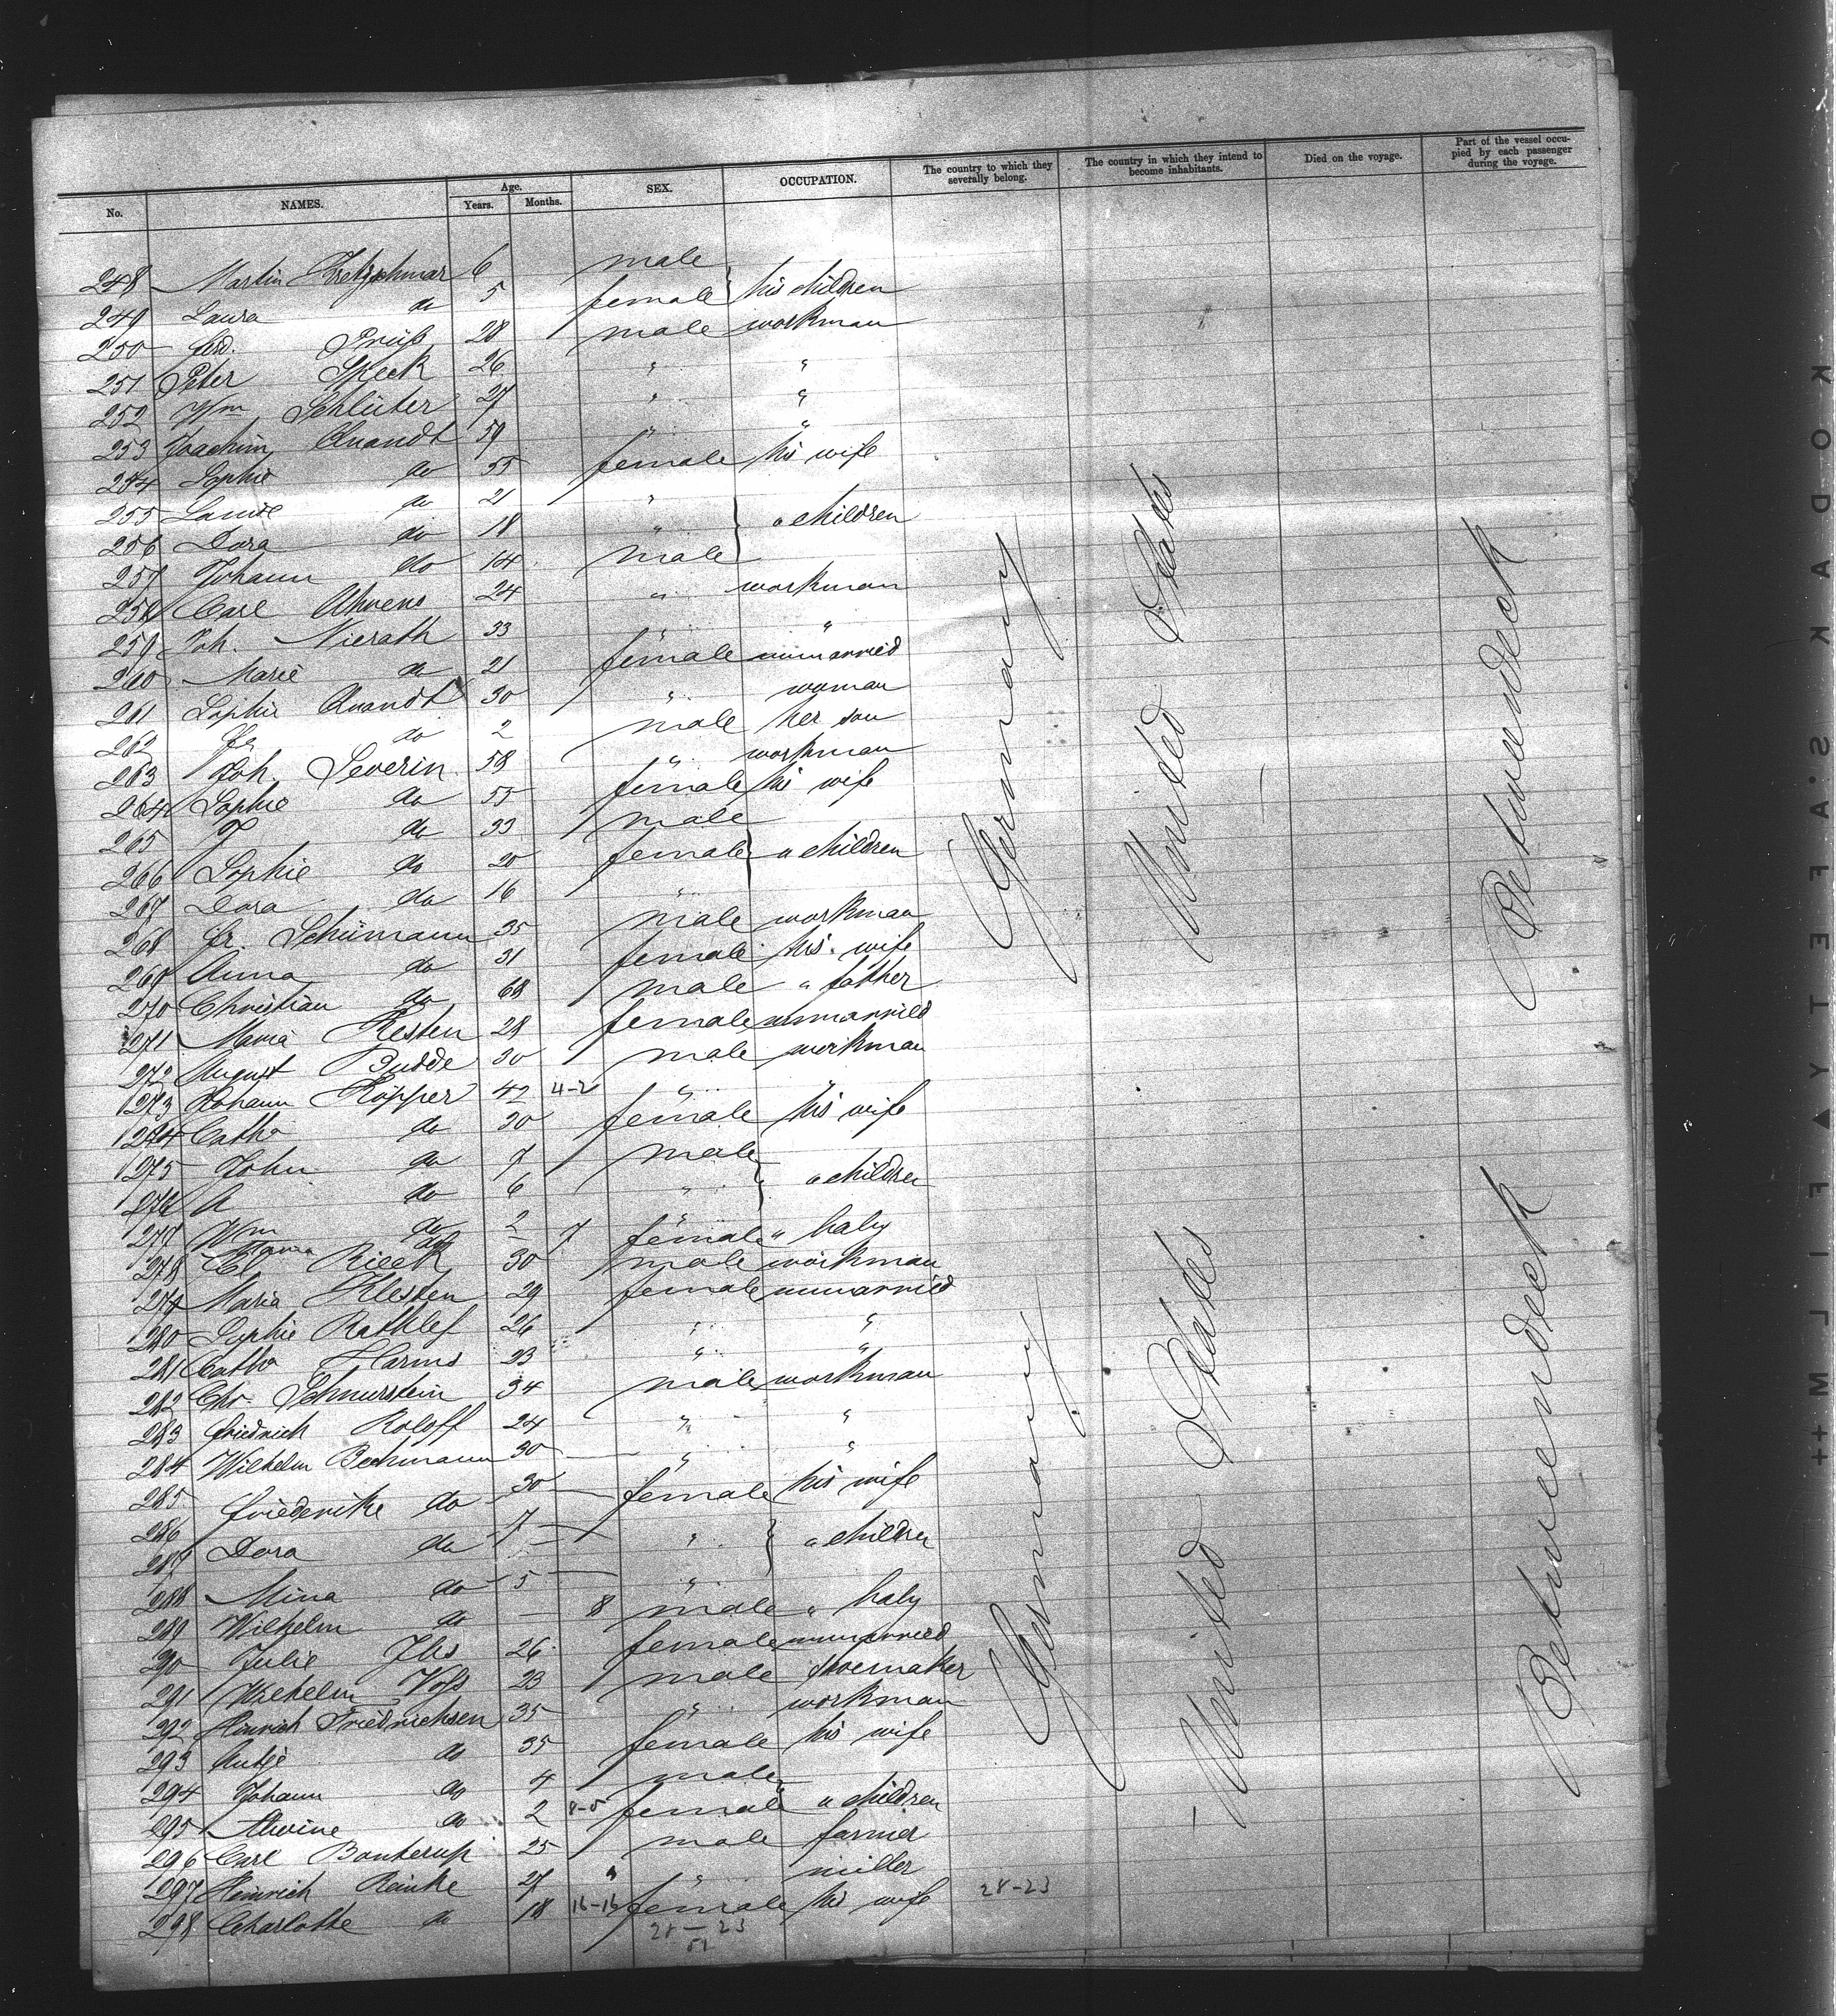 No. NAMES. Age. Years. Months. SEX. OCCUPATION. The country to which they severally belong. The country in which they intend to become inhabitants. Died on the voyage. Part of the vessel occupied by each passenger during the voyage.
248 Martin Kretzschmar 6 male
249 Laura do 5 female his children
250 Ferd. Prüß 28 male workman
251 Peter Speck 26 " "
252 Wm Schlüter 27 " "
253 Joachim Quandt 59 " "
254 Sophie do 55 female his wife
255 Louise do 21 "
256 Dora do 18 " " children
257 Johann do 14 male
258 Carl Ahrens 24 " workman
259 Joh. Nierath 33 " "
260 Marie do 21 female unmarried
261 Sophie Quandt 30 " woman
262 Fr do 2 male her son
263 Joh. Severin 58 " workman
264 Sophie do 55 female his wife
265 do 33 male
266 Sophie do 20 female " children
267 Dora do 16 "
268 Fr. Schümann 35 male workman
269 Anna do 31 female his wife
270 Christian do 68 male " father
271 Maria Kesten 28 female unmarried
272 August Budde 30 male workman
273 Johann Köpper 42 4-2 " "
274 Catha do 30 female his wife
275 John do 7 male
276 A do 6 " " children
277 Wm do 2 "
Maria do - 7 female " baby
278 Cl Rieck 30 male workman
279 Maria Klesten 29 female unmarried
280 Sophie Rathlef 26 " "
281 Catha Harms 23 " "
282 Chr. Schnurstein 34 male workman
283 Friedrich Roloff 24 " "
284 Wilhelm Bechmann 30 " "
285 Friederike do 30 female his wife
286
287 Dora do 7 " " children
288 Mina do 5 "
289 Wilhelm do - 8 male " baby
290 Julie Ihs 26 female unmarried
291 Wilhelm Voß 23 male shoemaker
292 Hinrich Friedrichsen 35 " workman
293 Antje do 35 female his wife
294 Johann do 4 male
295 Alwine do 2 8-5 female " children
296 Carl Bonkerup 25 male farmer
297 Heinrich Reinke 27 " " miller
298 Charlotte do 18 16-16 female his wife 28-23
28-23
51
Germany United States Betweendeck
Germany United States Betweendeck
KODAK S'AFETY FILM